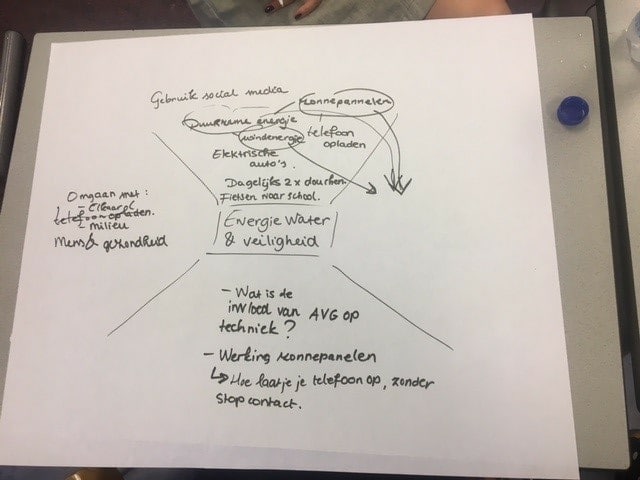 Gebruik social media
zonnepannelen
Duurzame energie
windenergie
telefoon
opladen
Elektrische
auto's.
Dagelijks 2x douchen.
Fietsen naar school.
Omgaan met:
- Elkaar
telefoon opladen.
- milieu
Mens & gezondheid
Energie Water
& veiligheid
- Wat is de
invloed van AVG op
techniek?
- Werking zonnepanelen
↳ Hoe laat je je telefoon op, zonder
stopcontact.